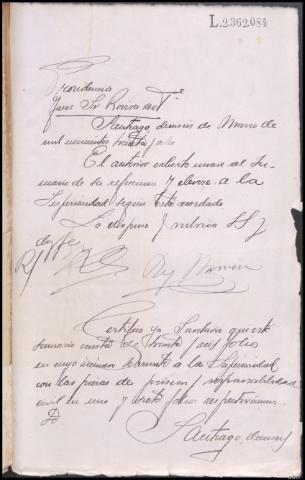 L.2.362.084
Providencia
Juez Sr
Santiago, dieciseis de Marzo de
mil novecientos treinta y ocho
El anterior exhorto unase al Su-
mario de su referencia y elevese a la
Superioridad según está acordado
Lo dispuso y rubrica SSª
doy fe
Certifico yo Secretario que este
sumario consta de treinta y seis folios
en cuyo se remite a la Superioridad
con las piezas de prision y responsabilidad
civil en uno y siete folios respectivamte.
Santiago,